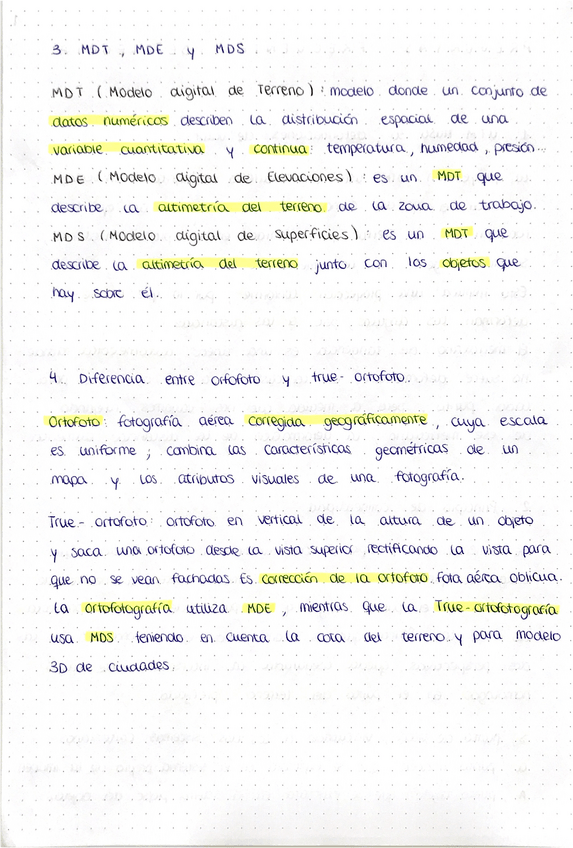 3. MDT, MDE y MDS
MDT (Modelo digital de Terreno): modelo donde un conjunto de
datos numéricos describen la distribución espacial de una
variable cuantitativa y continua: temperatura, humedad, presión...
MDE (Modelo digital de Elevaciones): es un MDT que
describe la altimetría del terreno de la zona de trabajo.
MDS (Modelo digital de superficies): es un MDT que
describe la altimetría del terreno junto con los objetos que
hay sobre él.
4. Diferencia entre ortofoto y true-ortofoto.
Ortofoto: fotografía aérea corregida geográficamente, cuya escala
es uniforme; combina las características geométricas de un
mapa y los atributos visuales de una fotografía.
True-ortofoto: ortofoto en vertical de la altura de un objeto
y saca una ortofoto desde la vista superior rectificando la vista para
que no se vean fachadas. Es corrección de la ortofoto. fota aérea oblicua.
La ortofotografía utiliza MDE, mientras que la True-ortofotografía
usa MDS teniendo en cuenta la cota del terreno y para modelo
3D de ciudades.